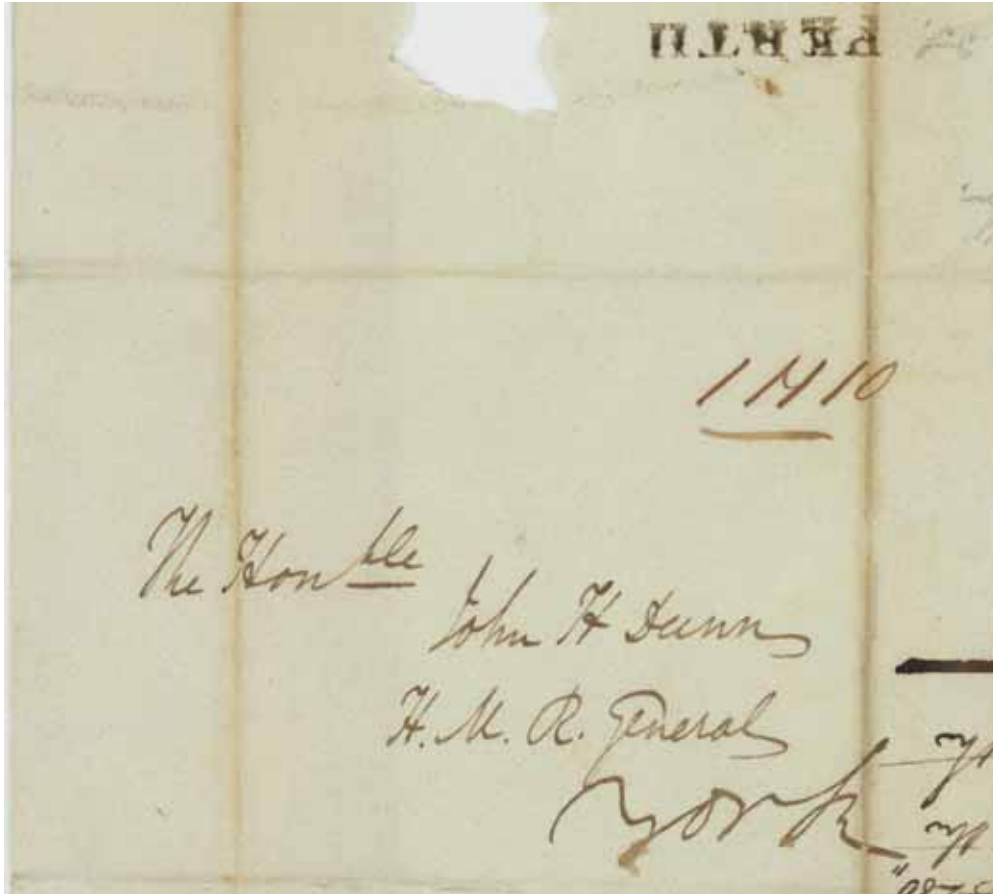 PERTH
1 N 10
The Hon ble
John H Dunn
H. M. R. General
York